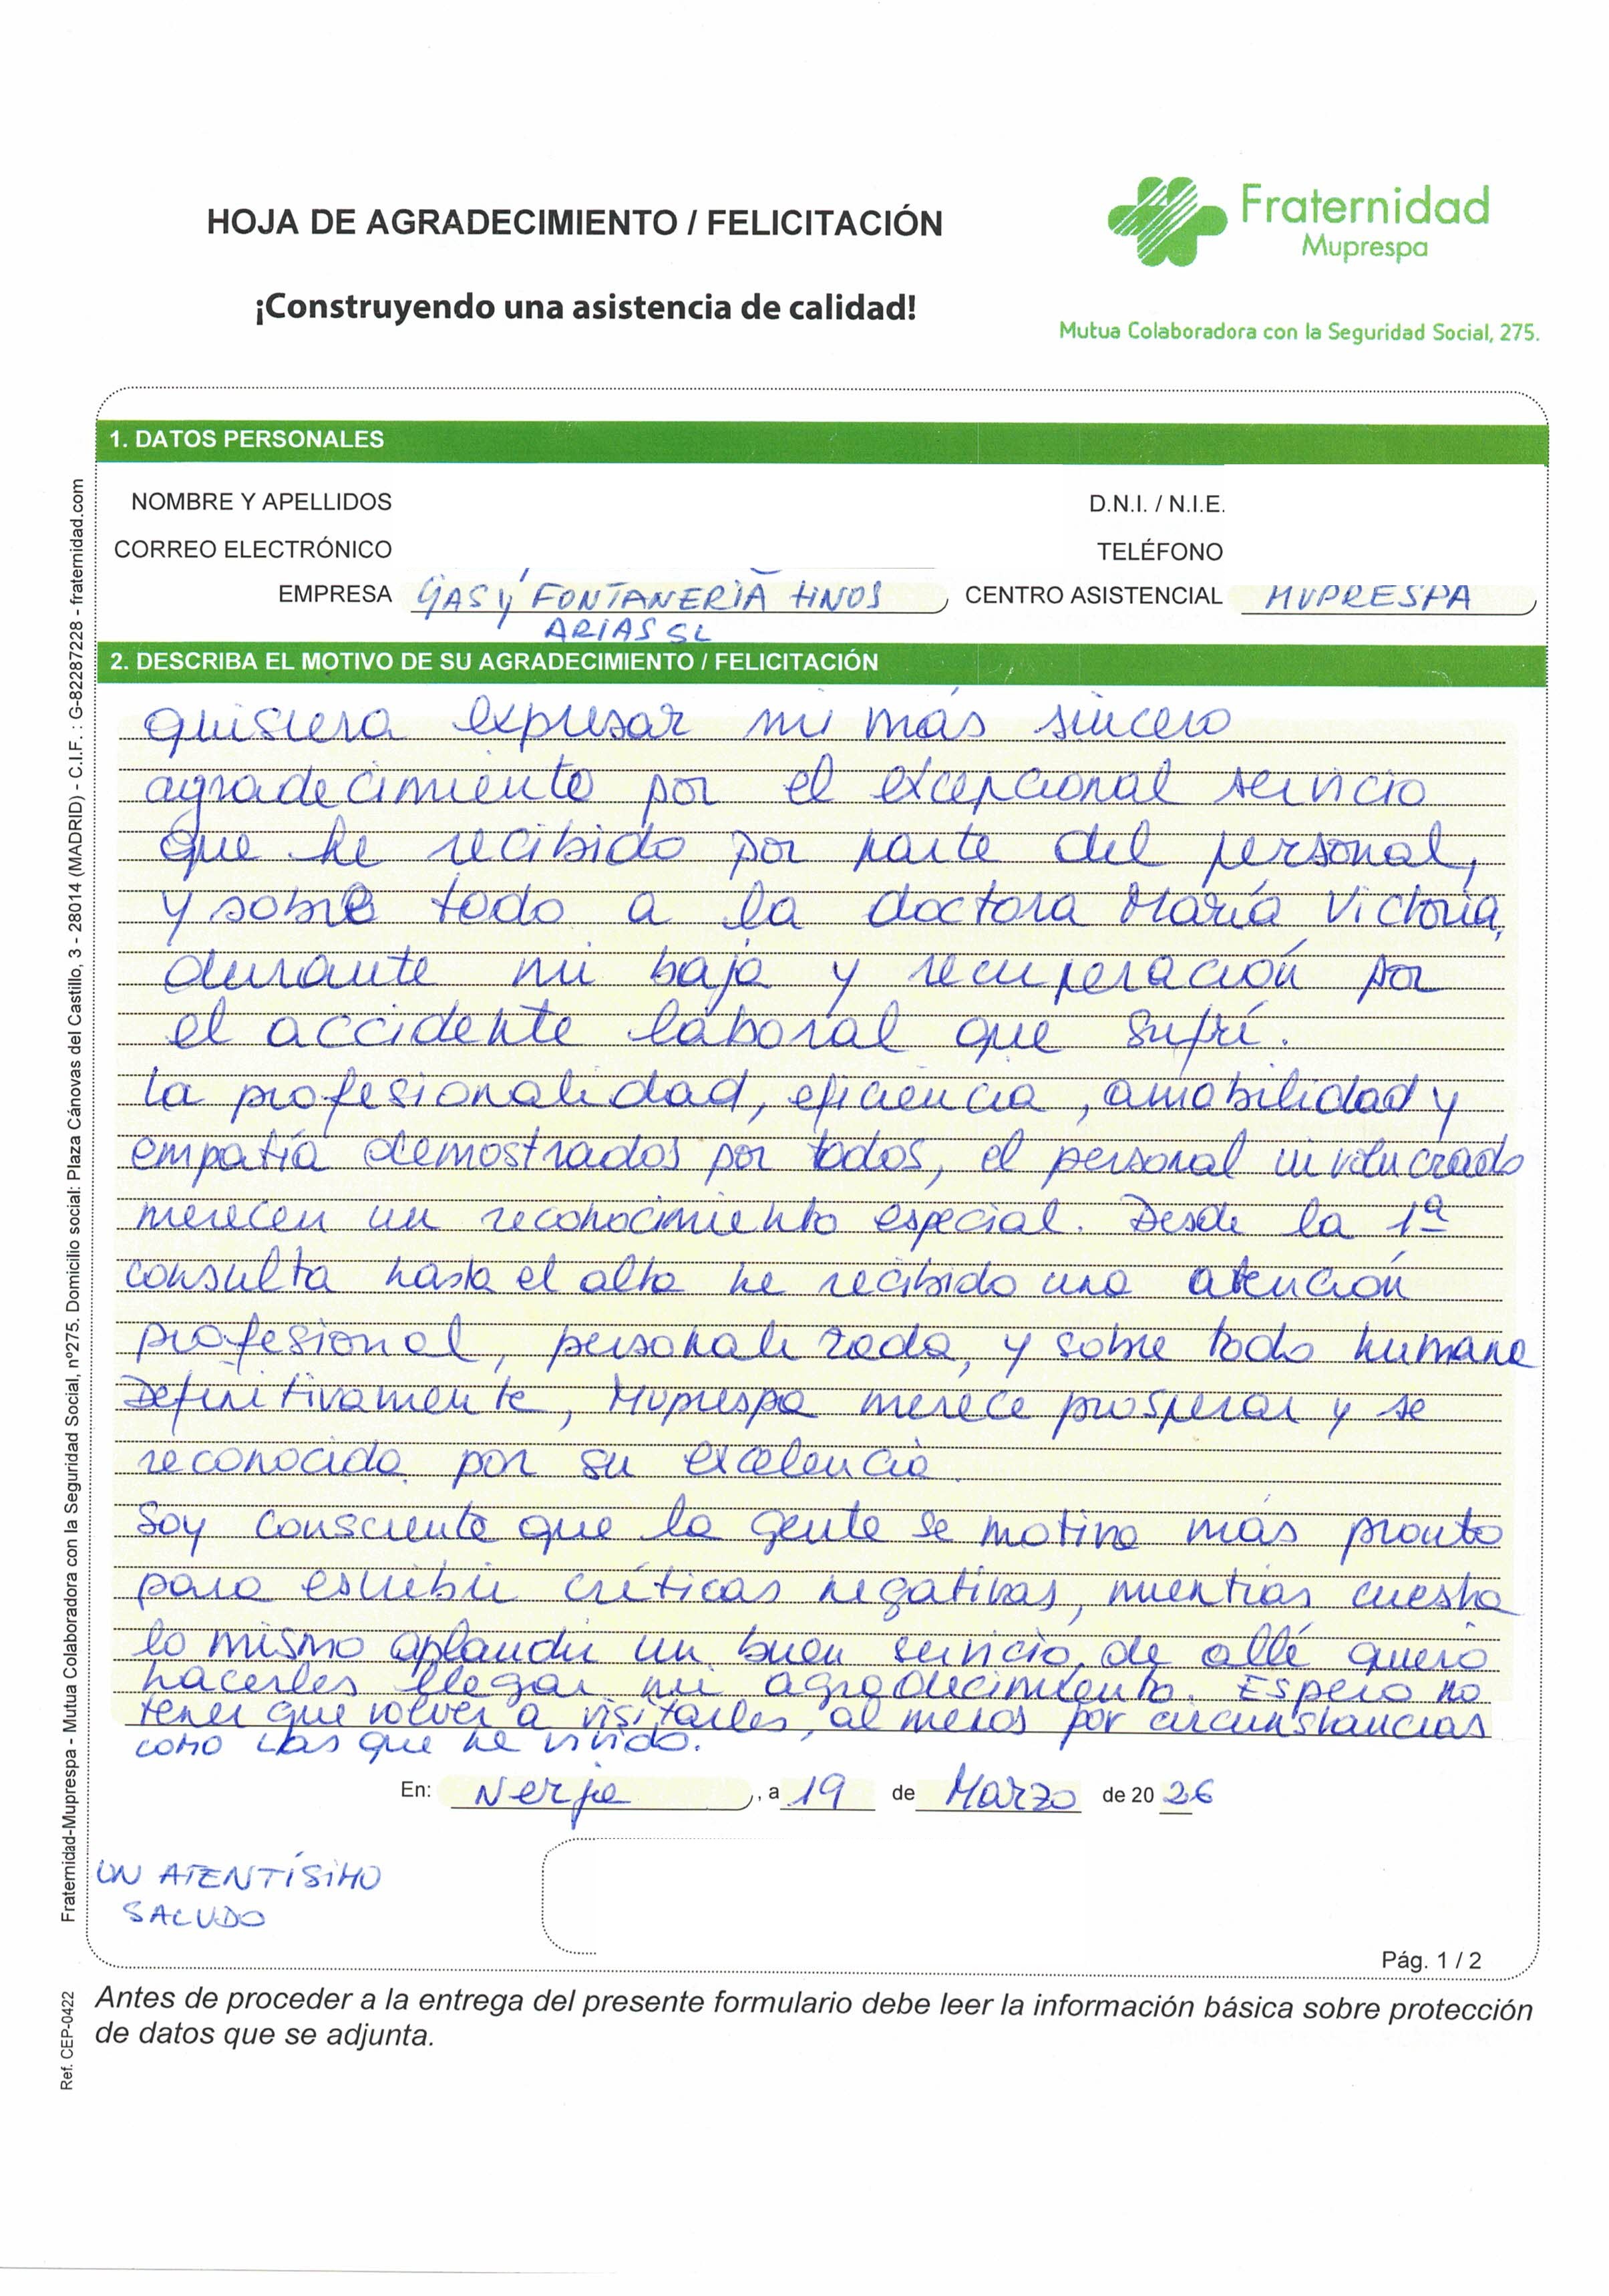 HOJA DE AGRADECIMIENTO / FELICITACIÓN
¡Construyendo una asistencia de calidad!
Fraternidad
Muprespa
Mutua Colaboradora con la Seguridad Social, 275.
1. DATOS PERSONALES
NOMBRE Y APELLIDOS
D.N.I. / N.I.E.
CORREO ELECTRÓNICO
TELÉFONO
EMPRESA GAS Y FONTANERIA HNOS
ARIAS SL
CENTRO ASISTENCIAL MUPRESPA
2. DESCRIBA EL MOTIVO DE SU AGRADECIMIENTO / FELICITACIÓN
quisiera expresar mi más sincero
agradecimiento por el excepcional servicio
que he recibido por parte del personal,
y sobre todo a la doctora María Victoria,
durante mi baja y recuperación por
el accidente laboral que sufrí.
La profesionalidad, eficiencia, amabilidad y
empatía demostrados por todos, el personal involucrado
merecen un reconocimiento especial. Desde la 1ª
consulta hasta el alta he recibido una atención
profesional, personalizada, y sobre todo humana
Definitivamente, Muprespa merece prosperar y se
reconocida por su excelencia.
Soy consciente que la gente se motiva más pronto
para escribir críticas negativas, mientras cuesta
lo mismo aplaudir un buen servicio, de allí quiero
hacerles llegar mi agradecimiento. Espero no
tener que volver a visitarles, al menos por circunstancias
como las que he vivido.
En: Nerja, a 19 de Marzo de 2026
UN ATENTÍSIMO
SALUDO
Pág. 1 / 2
Antes de proceder a la entrega del presente formulario debe leer la información básica sobre protección
de datos que se adjunta.
Fraternidad-Muprespa - Mutua Colaboradora con la Seguridad Social, nº275. Domicilio social: Plaza Cánovas del Castillo, 3 - 28014 (MADRID) - C.I.F. : G-82287228 - fraternidad.com
Ref. CEP-0422